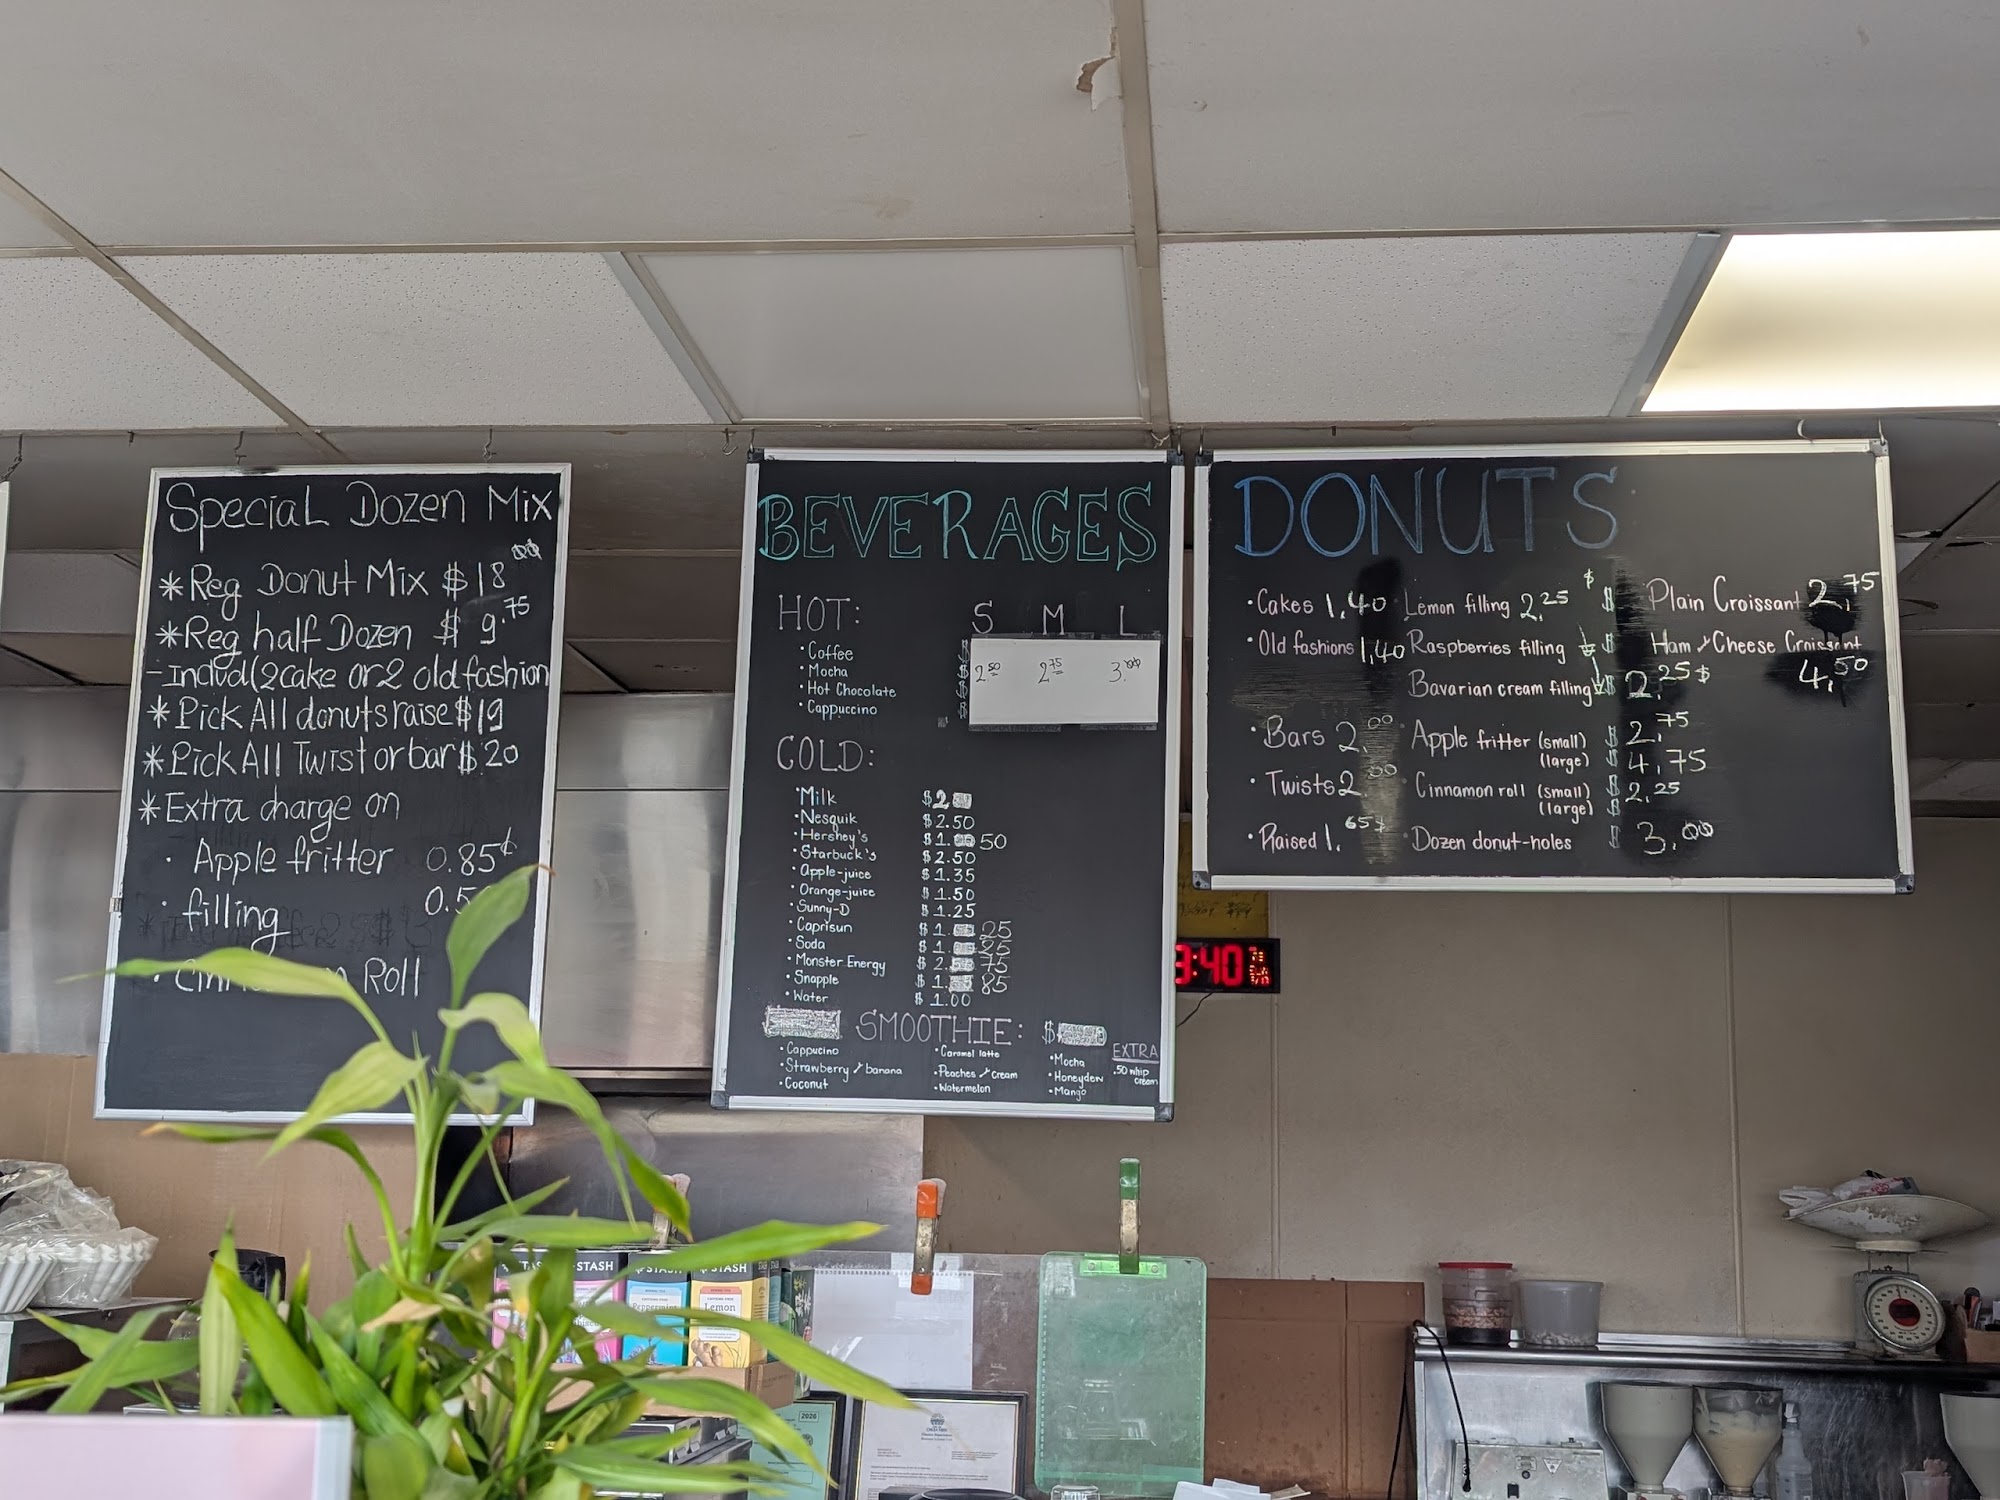 Special Dozen Mix
*Reg Donut Mix $18.00
*Reg half Dozen $9.75
-Includ(2cake or2 old fashion
*Pick All donuts raise $19
*Pick All Twist or bar $20
*Extra charge on
· Apple fritter 0.85¢
· filling 0.5
· Roll
BEVERAGES
HOT: S M L
• Coffee $
• Mocha $ 2.50 2.75 3.00
• Hot Chocolate $
• Cappuccino $
COLD:
• Milk $2
• Nesquik $2.50
• Hershey's $1.50
• Starbuck's $2.50
• Apple-juice $1.35
• Orange-juice $1.50
• Sunny-D $1.25
• Caprisun $1.25
• Soda $1.25
• Monster Energy $2.75
• Snapple $1.85
• Water $1.00
SMOOTHIE: $
• Cappucino • Caramel latte • Mocha
• Strawberry + banana • Peaches + cream • Honeydew
• Coconut • Watermelon • Mango
EXTRA
.50 whip
cream
DONUTS
• Cakes 1.40 Lemon filling 2.25 $ $ Plain Croissant 2.75
• Old fashions 1.40 Raspberries filling $ Ham + Cheese Croissant
Bavarian cream filling $ 2.25$ 4.50
• Bars 2.00 Apple fritter (small) $ 2.75
(large) $ 4.75
• Twists 2.00 Cinnamon roll (small) $ 2.25
(large) $
• Raised 1.65$ • Dozen donut-holes $ 3.00
3:40
STASH
STASH
STASH
Peppermint
Lemon
2026